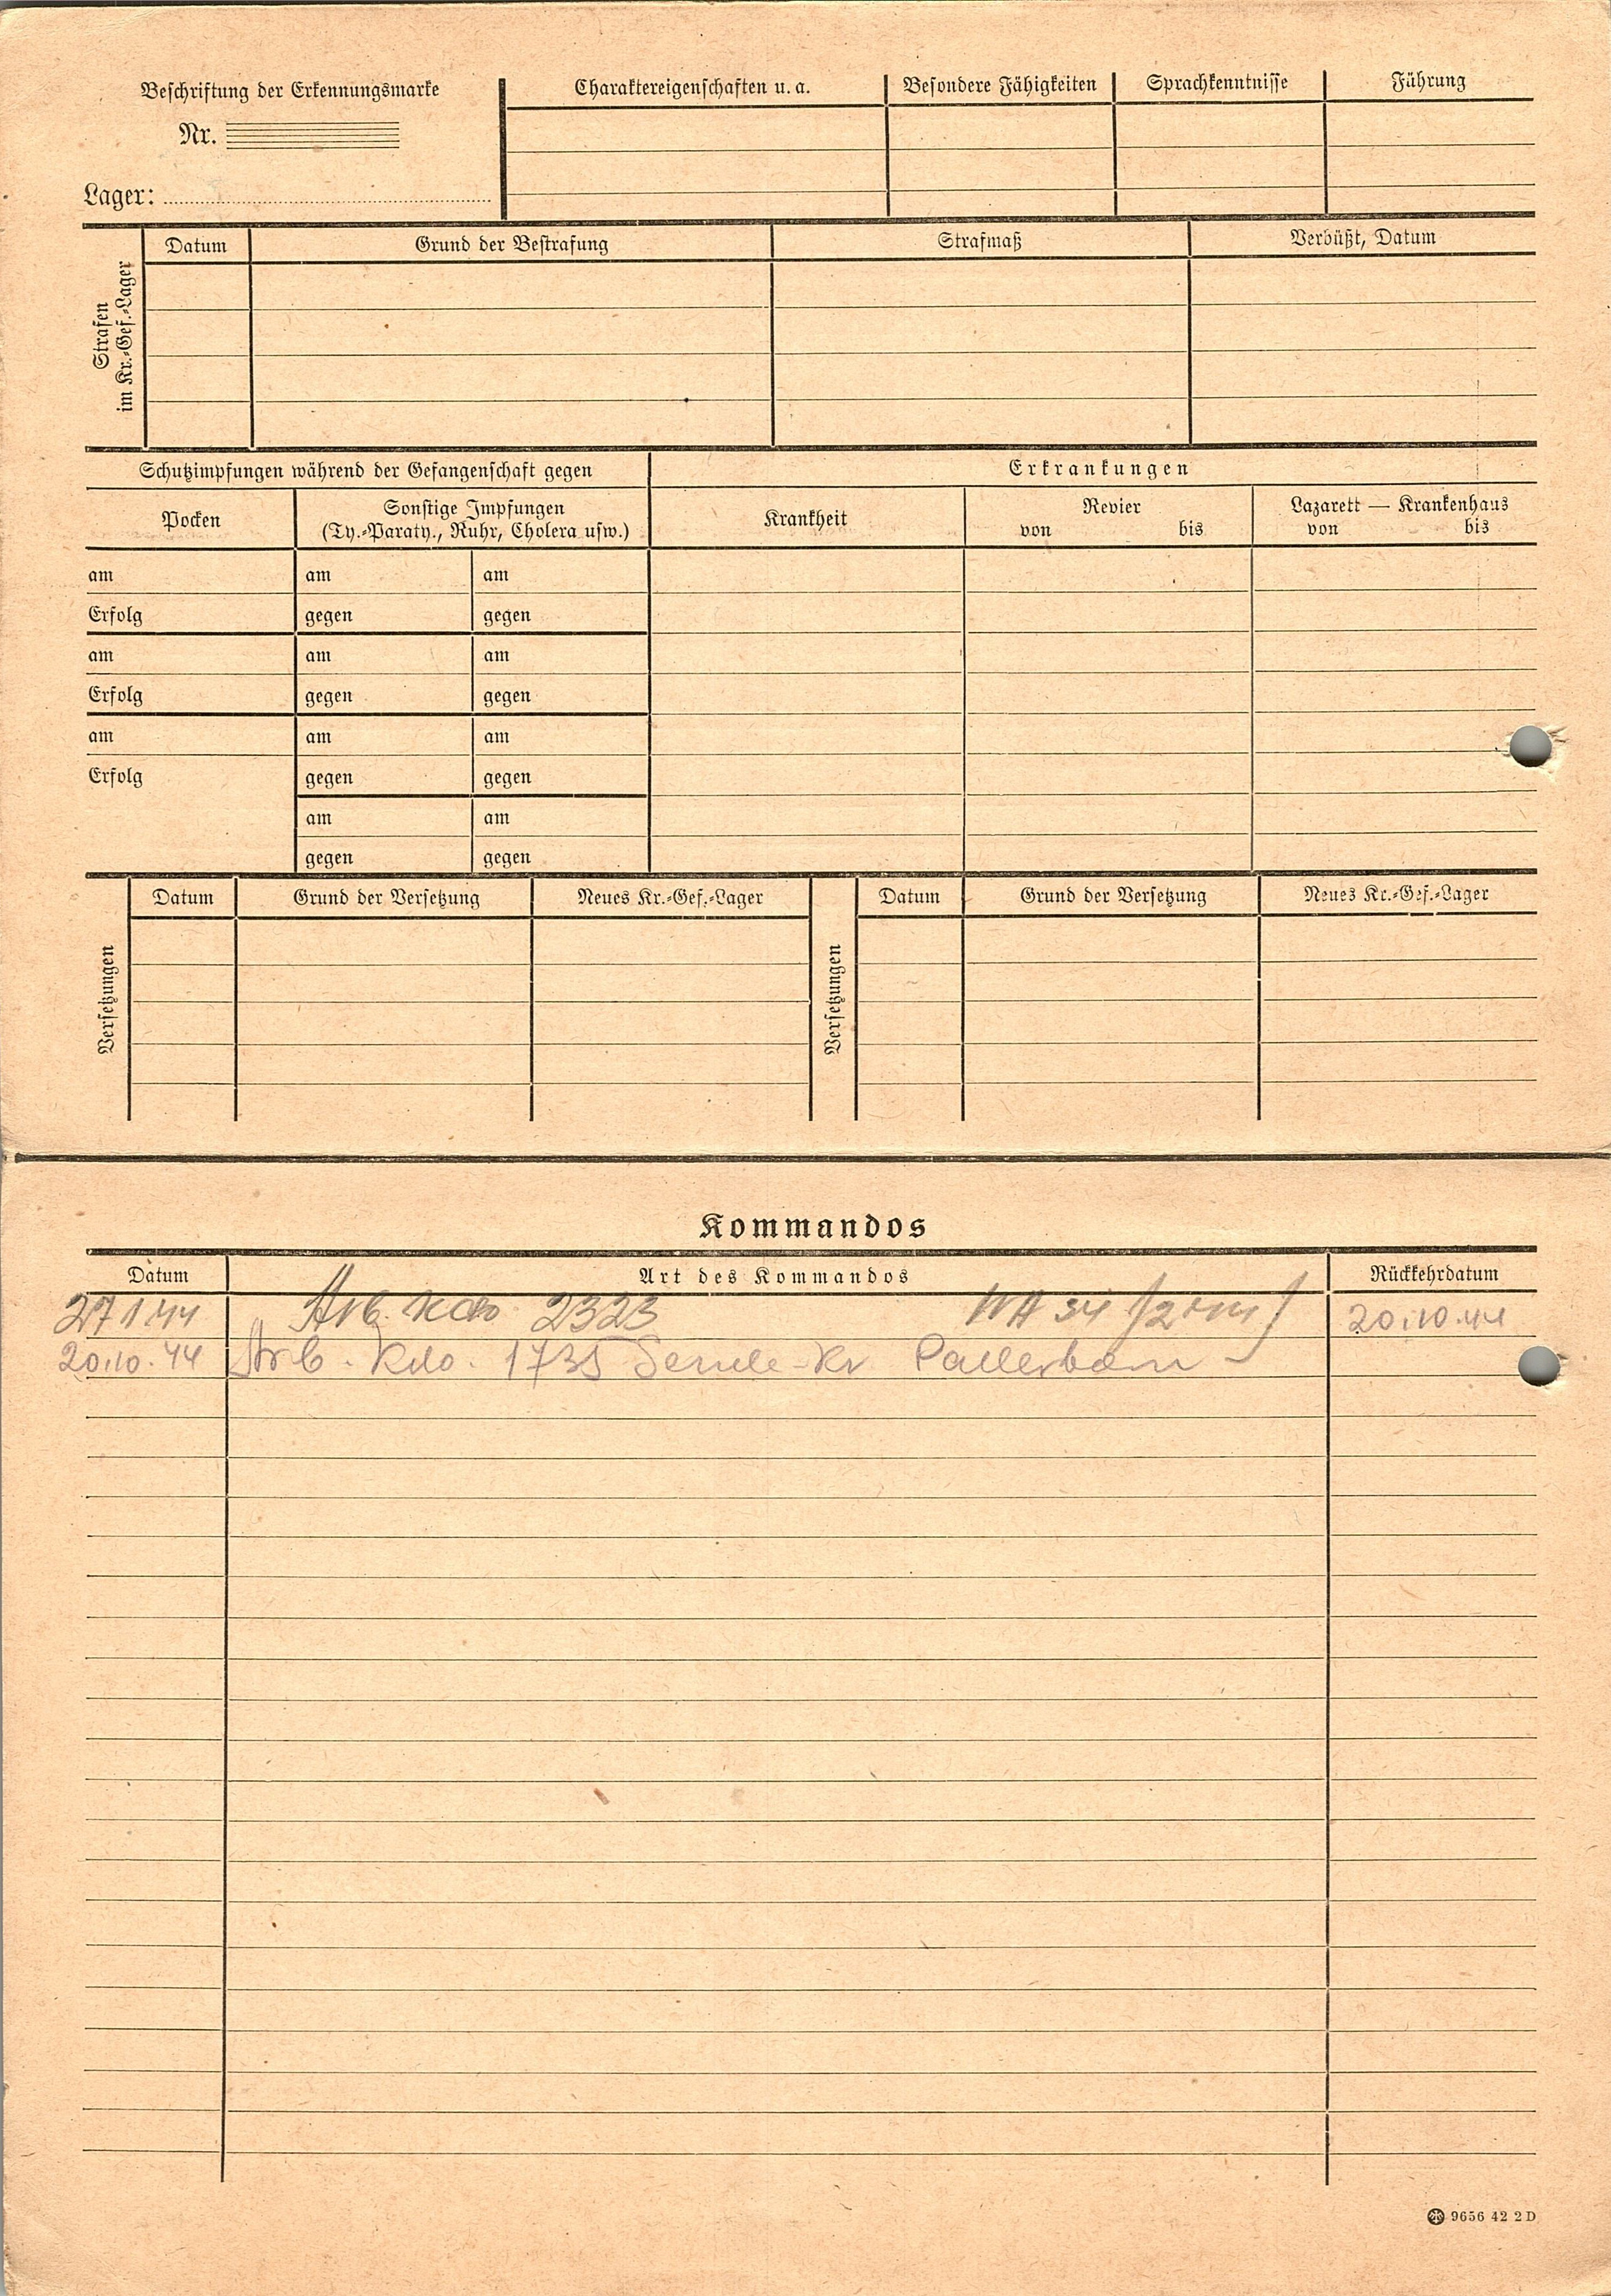 Beschriftung der Erkennungsmarke
Nr.
Lager:
Charaktereigenschaften u. a.
Besondere Fähigkeiten
Sprachkenntnisse
Führung
Strafen
im Kr.-Gef.-Lager
Datum
Grund der Bestrafung
Strafmaß
Verbüßt, Datum
Schutzimpfungen während der Gefangenschaft gegen
Erkrankungen
Pocken
Sonstige Impfungen
(Ty.-Paraty., Ruhr, Cholera usw.)
Krankheit
Revier
von bis
Lazarett — Krankenhaus
von bis
am am am
Erfolg gegen gegen
am am am
Erfolg gegen gegen
am am am
Erfolg gegen gegen
am am
gegen gegen
Versetzungen
Datum
Grund der Versetzung
Neues Kr.-Gef.-Lager
Versetzungen
Datum
Grund der Versetzung
Neues Kr.-Gef.-Lager
Kommandos
Datum Art des Kommandos Rückkehrdatum
27.1.44 Arb. Kdo 2323 20.10.44
20.10.44 Arb. Kdo. 1735 Sende-Kr Paderborn
9656 42 2 D